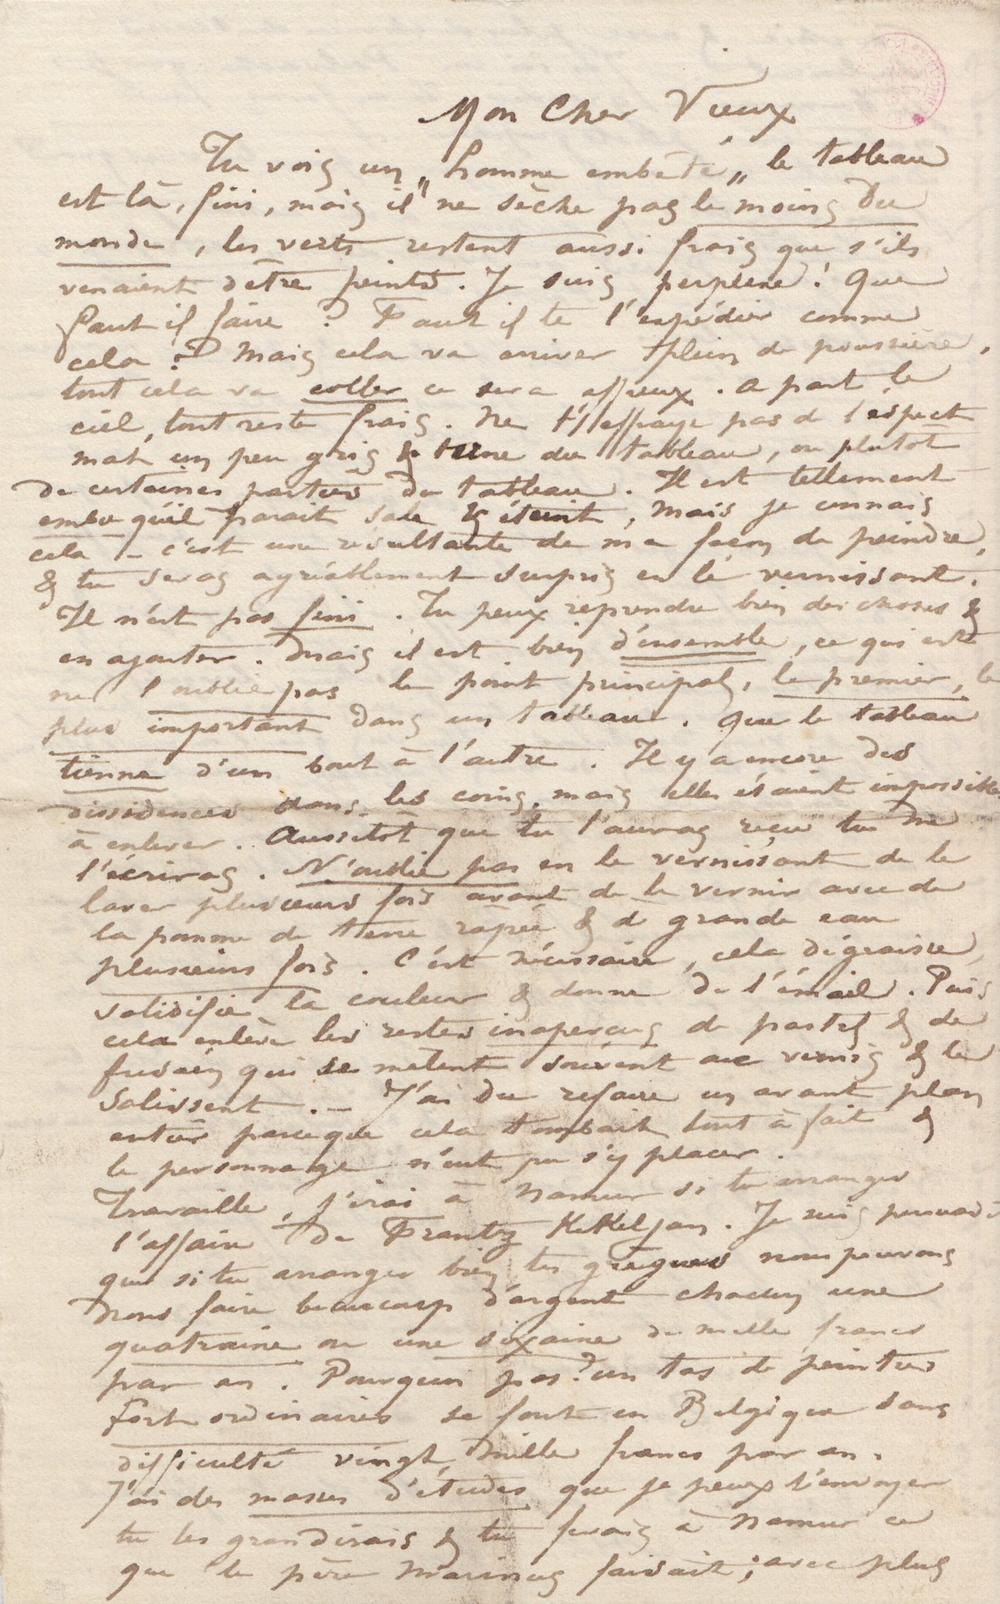 Mon Cher Vieux
Tu vois un „homme embêté„ le tableau
est là, fini, mais il ne sèche pas le moins du
monde, les verts restent aussi frais que s'ils
venaient d'être peints. Je suis perplexe! Que
faut il faire? Faut il te l'expédier comme
cela? Mais cela va arriver plein de poussière,
tout cela va coller ce sera affreux. A part le
ciel, tout reste frais. Ne t'effraye pas de l'aspect
mat un peu gris & terne du tableau, ou plutôt
de certaines parties du tableau. Il est tellement
embu qu'il parait sale & éteint, mais je connais
cela – c'est une resultante de ma façon de peindre,
& tu seras agréablement surpris en le vernissant.
Il n'est pas fini. Tu peux reprendre bien des choses &
en ajouter. Mais il est bien d'ensemble, ce qui est
ne l'oublie pas le point principal, le premier, le
plus important dans un tableau. Que le tableau
tienne d'un bout à l'autre. Il y a encore des
dissidences dans les coins, mais elles étaient impossible
à enlever. Aussitôt que tu l'auras reçu tu me
l'écriras. N'oublie pas en le vernissant de le
laver plusieurs fois avant de le vernir avec de
la pomme de terre rapée & à grande eau
plusieurs fois. C'est nécessaire, cela dégraisse,
solidifie la couleur & donne de l'émail. Puis
cela enlève les restes inaperçus de pastel & de
fusain qui se melent souvent au vernis & le
salissent. – J'ai du refaire un avant plan
entier parceque cela tombait tout à fait &
le personnage n'eut pu s'y placer.
Travaille, j'irai à Namur si tu arranges
l'affaire de Frantz Kekeljan. Je suis persuadé
que si tu arranges bien tes grègues nous pouvons
nous faire beaucoup d'argent chacun une
quatraine ou une sixaine de mille francs
par an. Pourquoi pas? un tas de peintres
fort ordinaires se font en Belgique sans
difficulté vingt mille francs par an.
J'ai des masses d'études que je peux t'envoyer
tu les grandirais & tu ferais à Namur ce
que le père Marinus faisait; avec plus